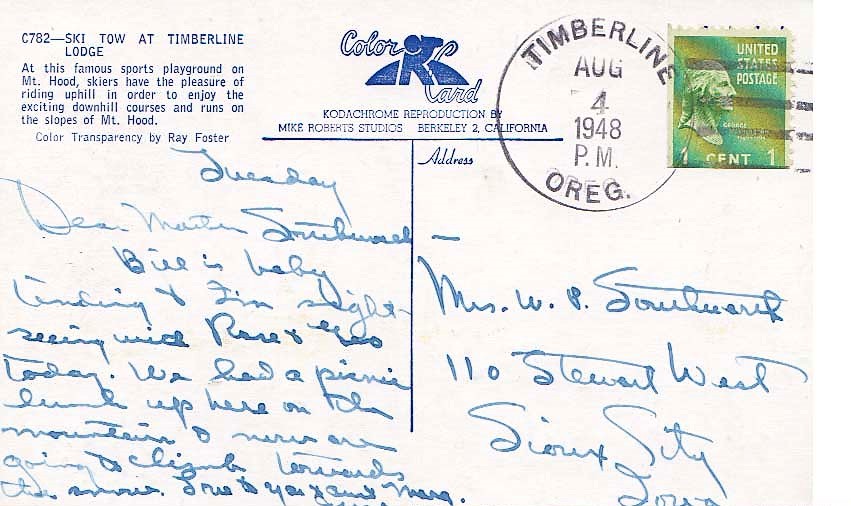 C782—SKI TOW AT TIMBERLINE
LODGE
At this famous sports playground on
Mt. Hood, skiers have the pleasure of
riding uphill in order to enjoy the
exciting downhill courses and runs on
the slopes of Mt. Hood.
Color Transparency by Ray Foster
Color Card
KODACHROME REPRODUCTION BY
MIKE ROBERTS STUDIOS BERKELEY 2, CALIFORNIA
Address
TIMBERLINE
AUG
4
1948
P.M.
OREG.
UNITED
STATES
POSTAGE
1 CENT 1
Tuesday
Dear Mother Southworth –
Bill is baby
tending & I'm sight-
seeing with Rose & Geo
today. We had a picnic
lunch up here on the
mountain & now are
going to climb towards
the snow. Love to you &
Mrs. W. P. Southworth
110 Stewart West
Sioux City
Iowa